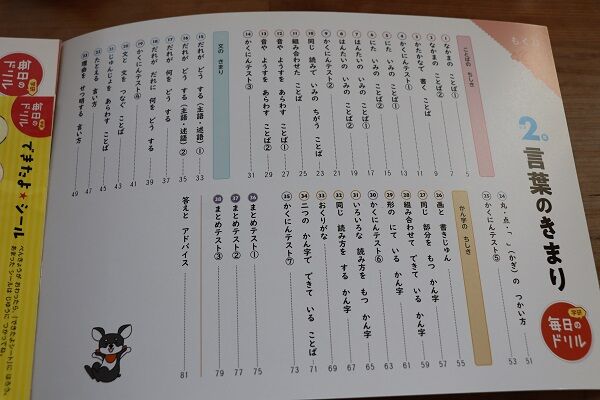 もくじ
2年
言葉のきまり
学研
毎日の
ドリル
ことばの ちしき
① なかまの ことば① 5
② なかまの ことば② 7
③ かたかなで 書く ことば 9
④ かくにんテスト① 11
⑤ にた いみの ことば① 13
⑥ にた いみの ことば② 15
⑦ はんたいの いみの ことば① 17
⑧ はんたいの いみの ことば② 19
⑨ かくにんテスト② 21
⑩ 同じ 読みで いみの ちがう ことば 23
⑪ 組み合わせた ことば 25
⑫ 音や ようすを あらわす ことば① 27
⑬ 音や ようすを あらわす ことば② 29
⑭ かくにんテスト③ 31
文の きまり
⑮ だれが どう する(主語・述語)① 33
⑯ だれが どう する(主語・述語)② 35
⑰ だれが 何を どう する 37
⑱ だれが だれに 何を どう する 39
⑲ かくにんテスト④ 41
⑳ 文と 文を つなぐ ことば 43
㉑ じゅんじょを あらわす ことば 45
㉒ たとえる 言い方 47
㉓ せつ明する 言い方 49
㉔ 丸・点・「 」(かぎ)の つかい方 51
㉕ かくにんテスト⑤ 53
かん字の ちしき
㉖ 画と 書きじゅん 55
㉗ 同じ 部分を もつ かん字 57
㉘ 組み合わせて できて いる かん字 59
㉙ 形の にて いる かん字 61
㉚ かくにんテスト⑥ 63
㉛ いろいろな 読み方を もつ かん字 65
㉜ 同じ 読み方を する かん字 67
㉝ おくりがな 69
㉞ 二つの かん字で できて いる ことば 71
㉟ かくにんテスト⑦ 73
㊱ まとめテスト① 75
㊲ まとめテスト② 77
㊳ まとめテスト③ 79
答えと アドバイス 81
毎日の
ドリル
学研
毎日の
ドリル
できたよ★シール
べんきょうが おわったら、「できたよシート」に はろう。
あまった シールは じゆうに つかってね。